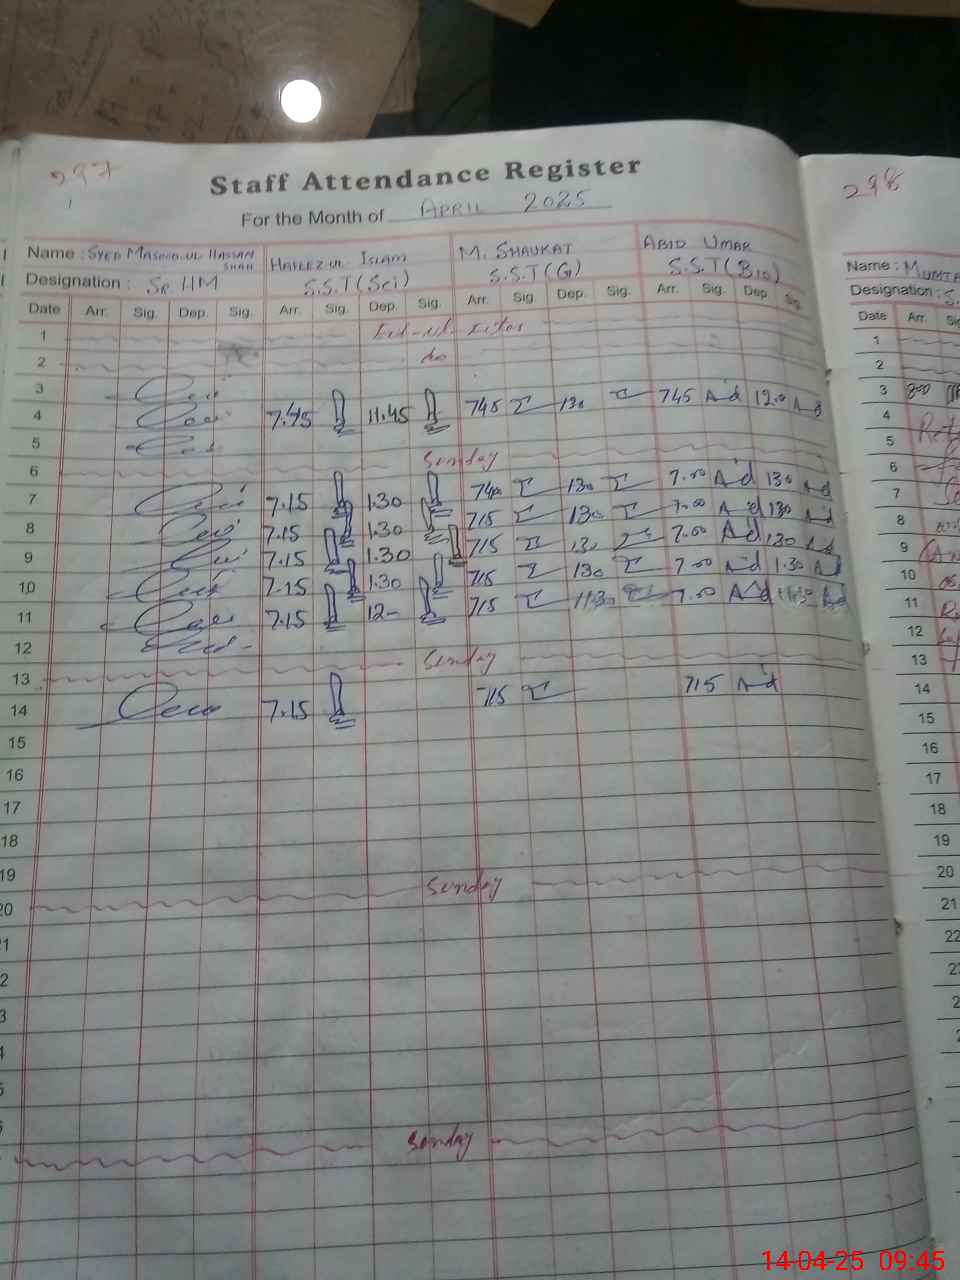 297
Staff Attendance Register
For the Month of APRIL 2025
Name : SYED MASOOD UL HASSAN SHAH HAFEEZ UL ISLAM M. SHAUKAT ABID UMAR
Designation : SR. HM S.S.T (Sci) S.S.T (G) S.S.T (Bio)
Date Arr. Sig. Dep. Sig. Arr. Sig. Dep. Sig. Arr. Sig. Dep. Sig. Arr. Sig. Dep. Sig.
1 Eid-ul-Fiter
2 do
3
4 7.45 11.45 745 130 745 Ad 12.00 Ad
5
6 Sunday
7 7.15 1.30 740 130 7.00 Ad 130 Ad
8 7.15 1.30 715 130 7.00 Ad 130 Ad
9 7.15 1.30 715 130 7.00 Ad 130 Ad
10 7.15 1.30 715 130 7.00 Ad 1.30 Ad
11 7.15 12- 715 1130 7.00 Ad Ad
12
13 Sunday
14 7.15 715 715 Ad
15
16
17
18
19
20 Sunday
Sunday
298
Name : MUMTA
Designation : S.
Date Arr. Sig
1
2
3 800
4
5
6
7
8
9
10
11
12
13
14
15
16
17
18
19
20
21
22
14-04-25 09:45